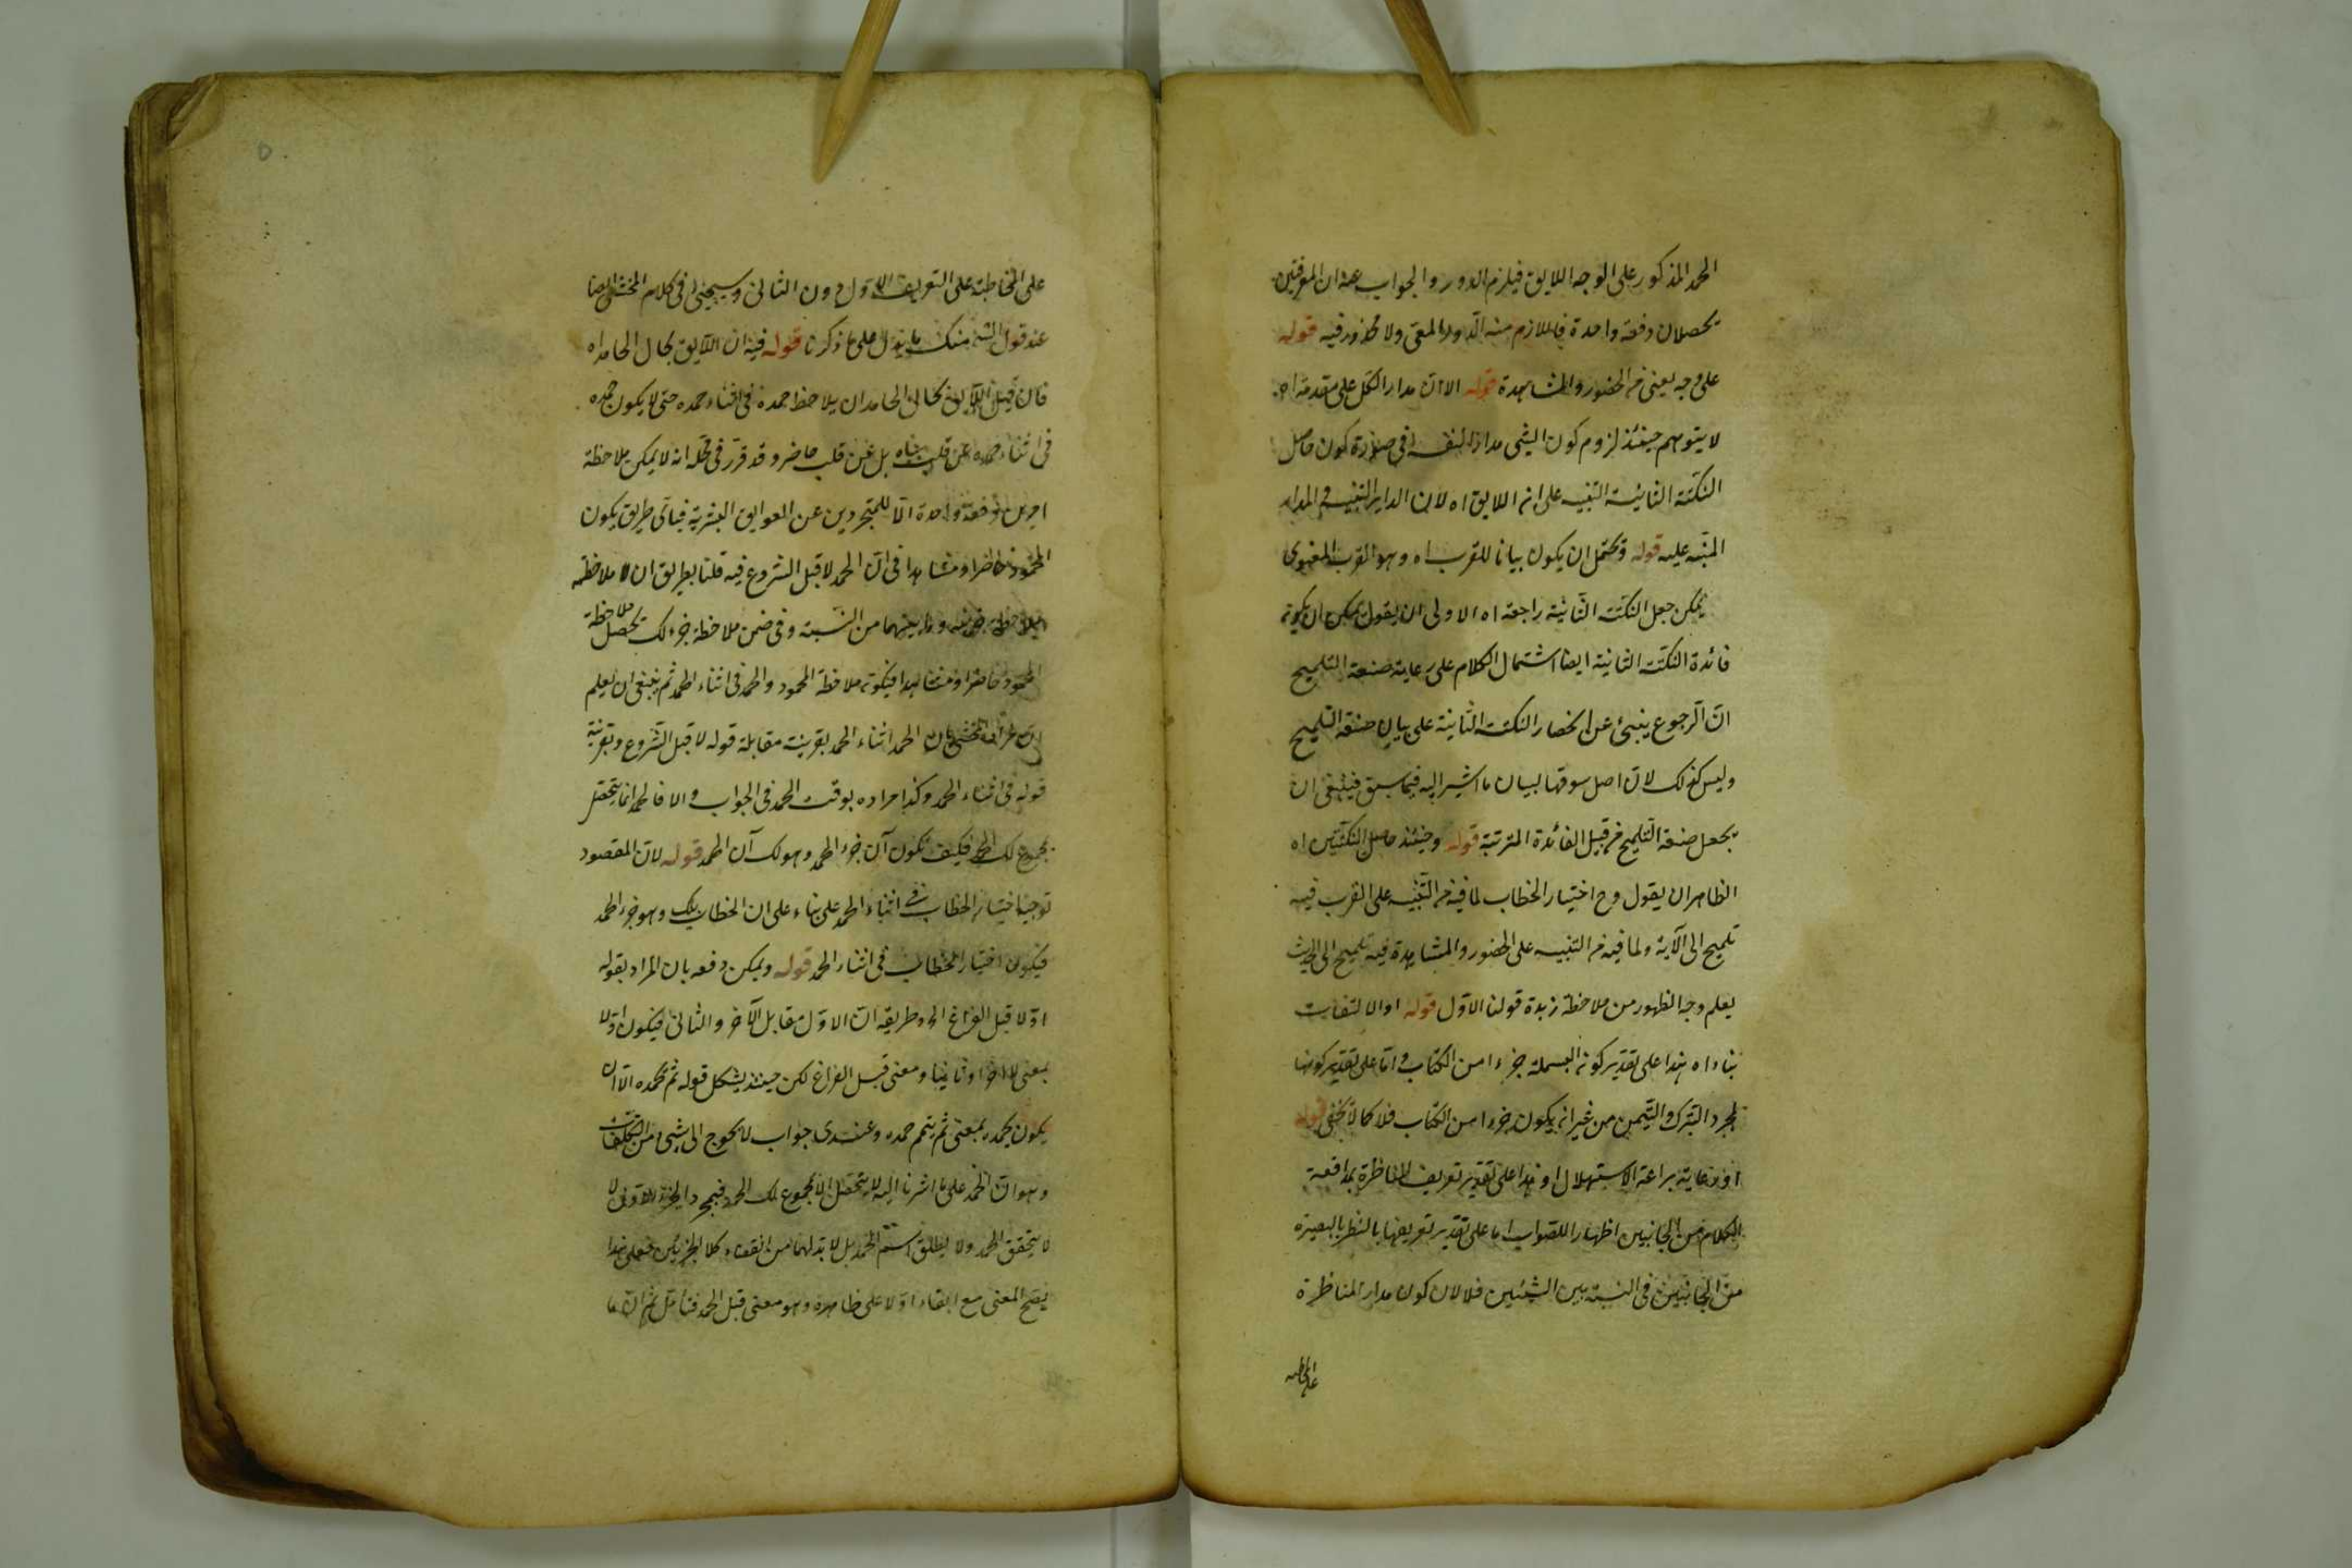 الحمد المذكور على الوجه اللايق فيلزم الدور والجواب عنه ان المعرفتين
تحصلان دفعة واحدة فاللازم منه الدور المعى ولا محذور فيه قوله
على وجه يعنى من الحضور والمشاهدة قوله الا ان مدار الكل على مقدمة اه
لا يتوهم حينئذ لزوم كون الشئ مدارا لنفسه فى صورة كون حاصل
النكتة الثانية التنبيه على انه اللايق اه لان الداير التنبيه والمدار
المنبه عليه قوله ويحتمل ان يكون بيانا للقرب اه وهو القرب المعنوى
يمكن جعل النكتة الثانية راجعة اه الاولى ان يقول يمكن ان يكون
فائدة النكتة الثانية ايضا اشتمال الكلام على رعاية صنعة التلميح
ان الرجوع ينبئ عن انحصار النكتة الثانية على بيان صنعة التلميح
وليس كذلك لان اصل سوقها لبيان ما اشير اليه فيما سبق فينبغى ان
يجعل صنعة التلميح من قبيل الفائدة المترتبة قوله وحينئذ حاصل النكتتين اه
الظاهر ان يقول وح اختيار الخطاب لما فيه من التنبيه على القرب فيه
تلميح الى الآية ولما فيه من التنبيه على الحضور والمشاهدة فيه تلميح الى الحديث
يعلم وجه الظهور من ملاحظة زبدة قولنا الاول قوله او الالتفات
بناء اه هذا على تقدير كون البسملة جزءا من الكتاب واما على تقدير كونها
لمجرد التبرك والتيمن من غير انه يكون جزءا من الكتاب فلا كما لا يخفى قوله
او رعاية براعة الاستهلال او هذا على تقدير تعريف المناظرة بمدافعة
الكلام من الجانبين اظهارا للصواب اما على تقدير تعريفها بالنظر بالبصيرة
من الجانبين فى النسبة بين الشيئين فلا لان كون مدار المناظرة
على المخاطبة
على المخاطبة على التعريف الاول دون الثانى وسيجئ فى كلام المحشى ايضا
عند قول الش منك ما يؤل على ما ذكرنا قوله فيه ان اللايق بحال الحامد اه
فان قيل اللايق بحال الحامد ان يلاحظ حمده فى اثناء حمده حتى لا يكون حمده
فى اثناء حمده عن قلب ساه بل عن قلب حاضر وقد قرر فى محله انه لا يمكن ملاحظة
امرين دفعة واحدة الا للمتجردين عن العوايق البشرية فباى طريق يكون
المحمود حاضرا ومشاهدا فى آن الحمد لا قبل الشروع فيه قلنا بطريق ان ملاحظة
وما بينهما من النسبة وفى ضمن ملاحظة جزء لك يحصل ملاحظة
المحمود حاضرا ومشاهدا فيكون ملاحظة المحمود والحمد فى اثناء الحمد ثم ينبغى ان يعلم
ان مراد المحشى بان الحمد اثناء الحمد بقرينة مقابلة قوله لا قبل الشروع وبقرينة
قوله فى اثناء الحمد وكذا مراده بوقت الحمد فى الجواب والا فالحمد انما يتحصل
بمجموع لك الحمد فكيف يكون آن جزء الحمد وهو لك آن الحمد قوله لان المقصود
توجيه اختيار الخطاب فى اثناء الحمد على بناء على ان الخطاب بك وهو جزء الحمد
فيكون اختيار الخطاب فى اثناء الحمد قوله ويمكن دفعه بان المراد بقوله
اولا قبل الفراغ اه وطريقه ان الاول مقابل الآخر والثانى فيكون اولا
بمعنى لا اخرا وثانيا ومعنى قبل الفراغ لكن حينئذ يشكل قوله ثم يحمده الا ان
يكون يحمده بمعنى ثم يتمم حمده وعندى جواب لا يحوج الى شئ من التكلفات
وهو ان الحمد على ما اشرنا اليه لا يتحصل الا بمجموع لك الحمد فبمجرد الجزء الاول لا
لا يتحقق الحمد ولا يطلق اسم الحمد بل لا بد لهما من انقضاء كلا الجزئين فعلى هذا
يصح المعنى مع ابقاء اولا على ظاهره وهو معنى قبل الحمد فتأمل ثم ان ما